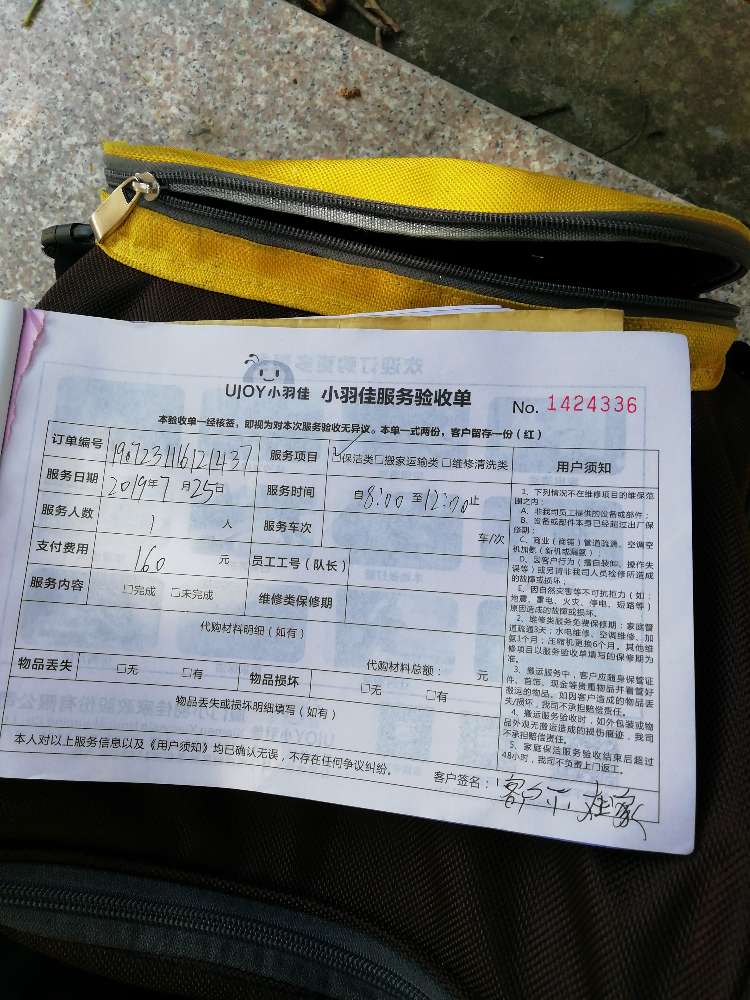 UJOY小羽佳 小羽佳服务验收单
No. 1424336
本验收单一经核签，即视为对本次服务验收无异议。本单一式两份，客户留存一份（红）
订单编号 服务项目 ☑保洁类□搬家运输类□维修清洗类
服务日期 2019年7月25日 服务时间 自8:00至12:00止
服务人数 1 人 服务车次 车/次
支付费用 160 元 员工工号（队长）
服务内容 □完成 □未完成 维修类保修期
代购材料明细（如有）
代购材料总额： 元
物品丢失 □无 □有 物品损坏 □无 □有
物品丢失或损坏明细填写（如有）
本人对以上服务信息以及《用户须知》均已确认无误，不存在任何争议纠纷。
客户签名：客户不在家
用户须知
1、下列情况不在维修项目的维保范
围之内：
A、非我司员工提供的设备或部件；
B、设备或部件本身已经超过出厂保
修期；
C、商业（商铺）管道疏通、空调空
机加氨（新机或漏氨）；
D、因客户行为（擅自装卸、操作失
误等）或另请非我司人员检修所造成
的故障或损坏；
E、因自然灾害等不可抗拒力（如：
地震、雷电、火灾、停电、短路等）
原因造成的故障或损坏。
2、维修类服务免费保修期：家庭管
道疏通3天；水电维修、空调维修、加
氨1个月；压缩机更换6个月。其他维
修项目以服务验收单填写的保修期为
准。
3、搬运服务中，客户应随身保管证
件、首饰、现金等贵重物品并看管好
搬运的物品。如因客户造成的物品丢
失/损坏，我司不承担赔偿责任。
4、搬运服务验收时，如外包装或物
品外观无搬运造成的损伤痕迹，我司
不承担赔偿责任。
5、家庭保洁服务验收结束后超过
48小时，我司不负责上门返工。